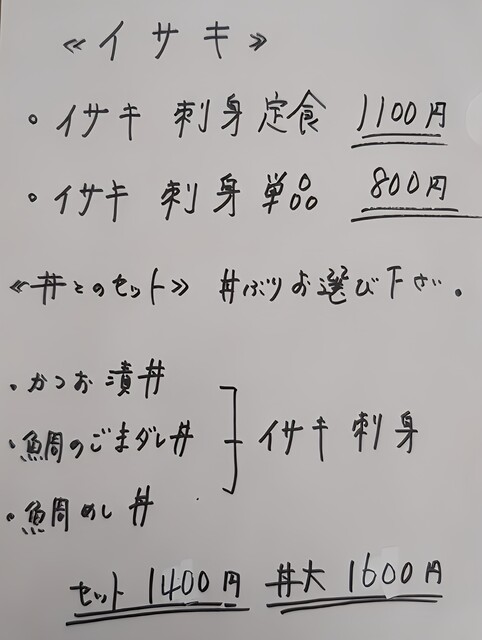 ≪イサキ≫
・イサキ 刺身定食 1100円
・イサキ 刺身 単品 800円
≪丼とのセット≫ 丼ぶりお選び下さい。
・かつお漬丼
・鯛のごまダレ丼
イサキ 刺身
・鯛めし丼
セット 1400円 丼大 1600円